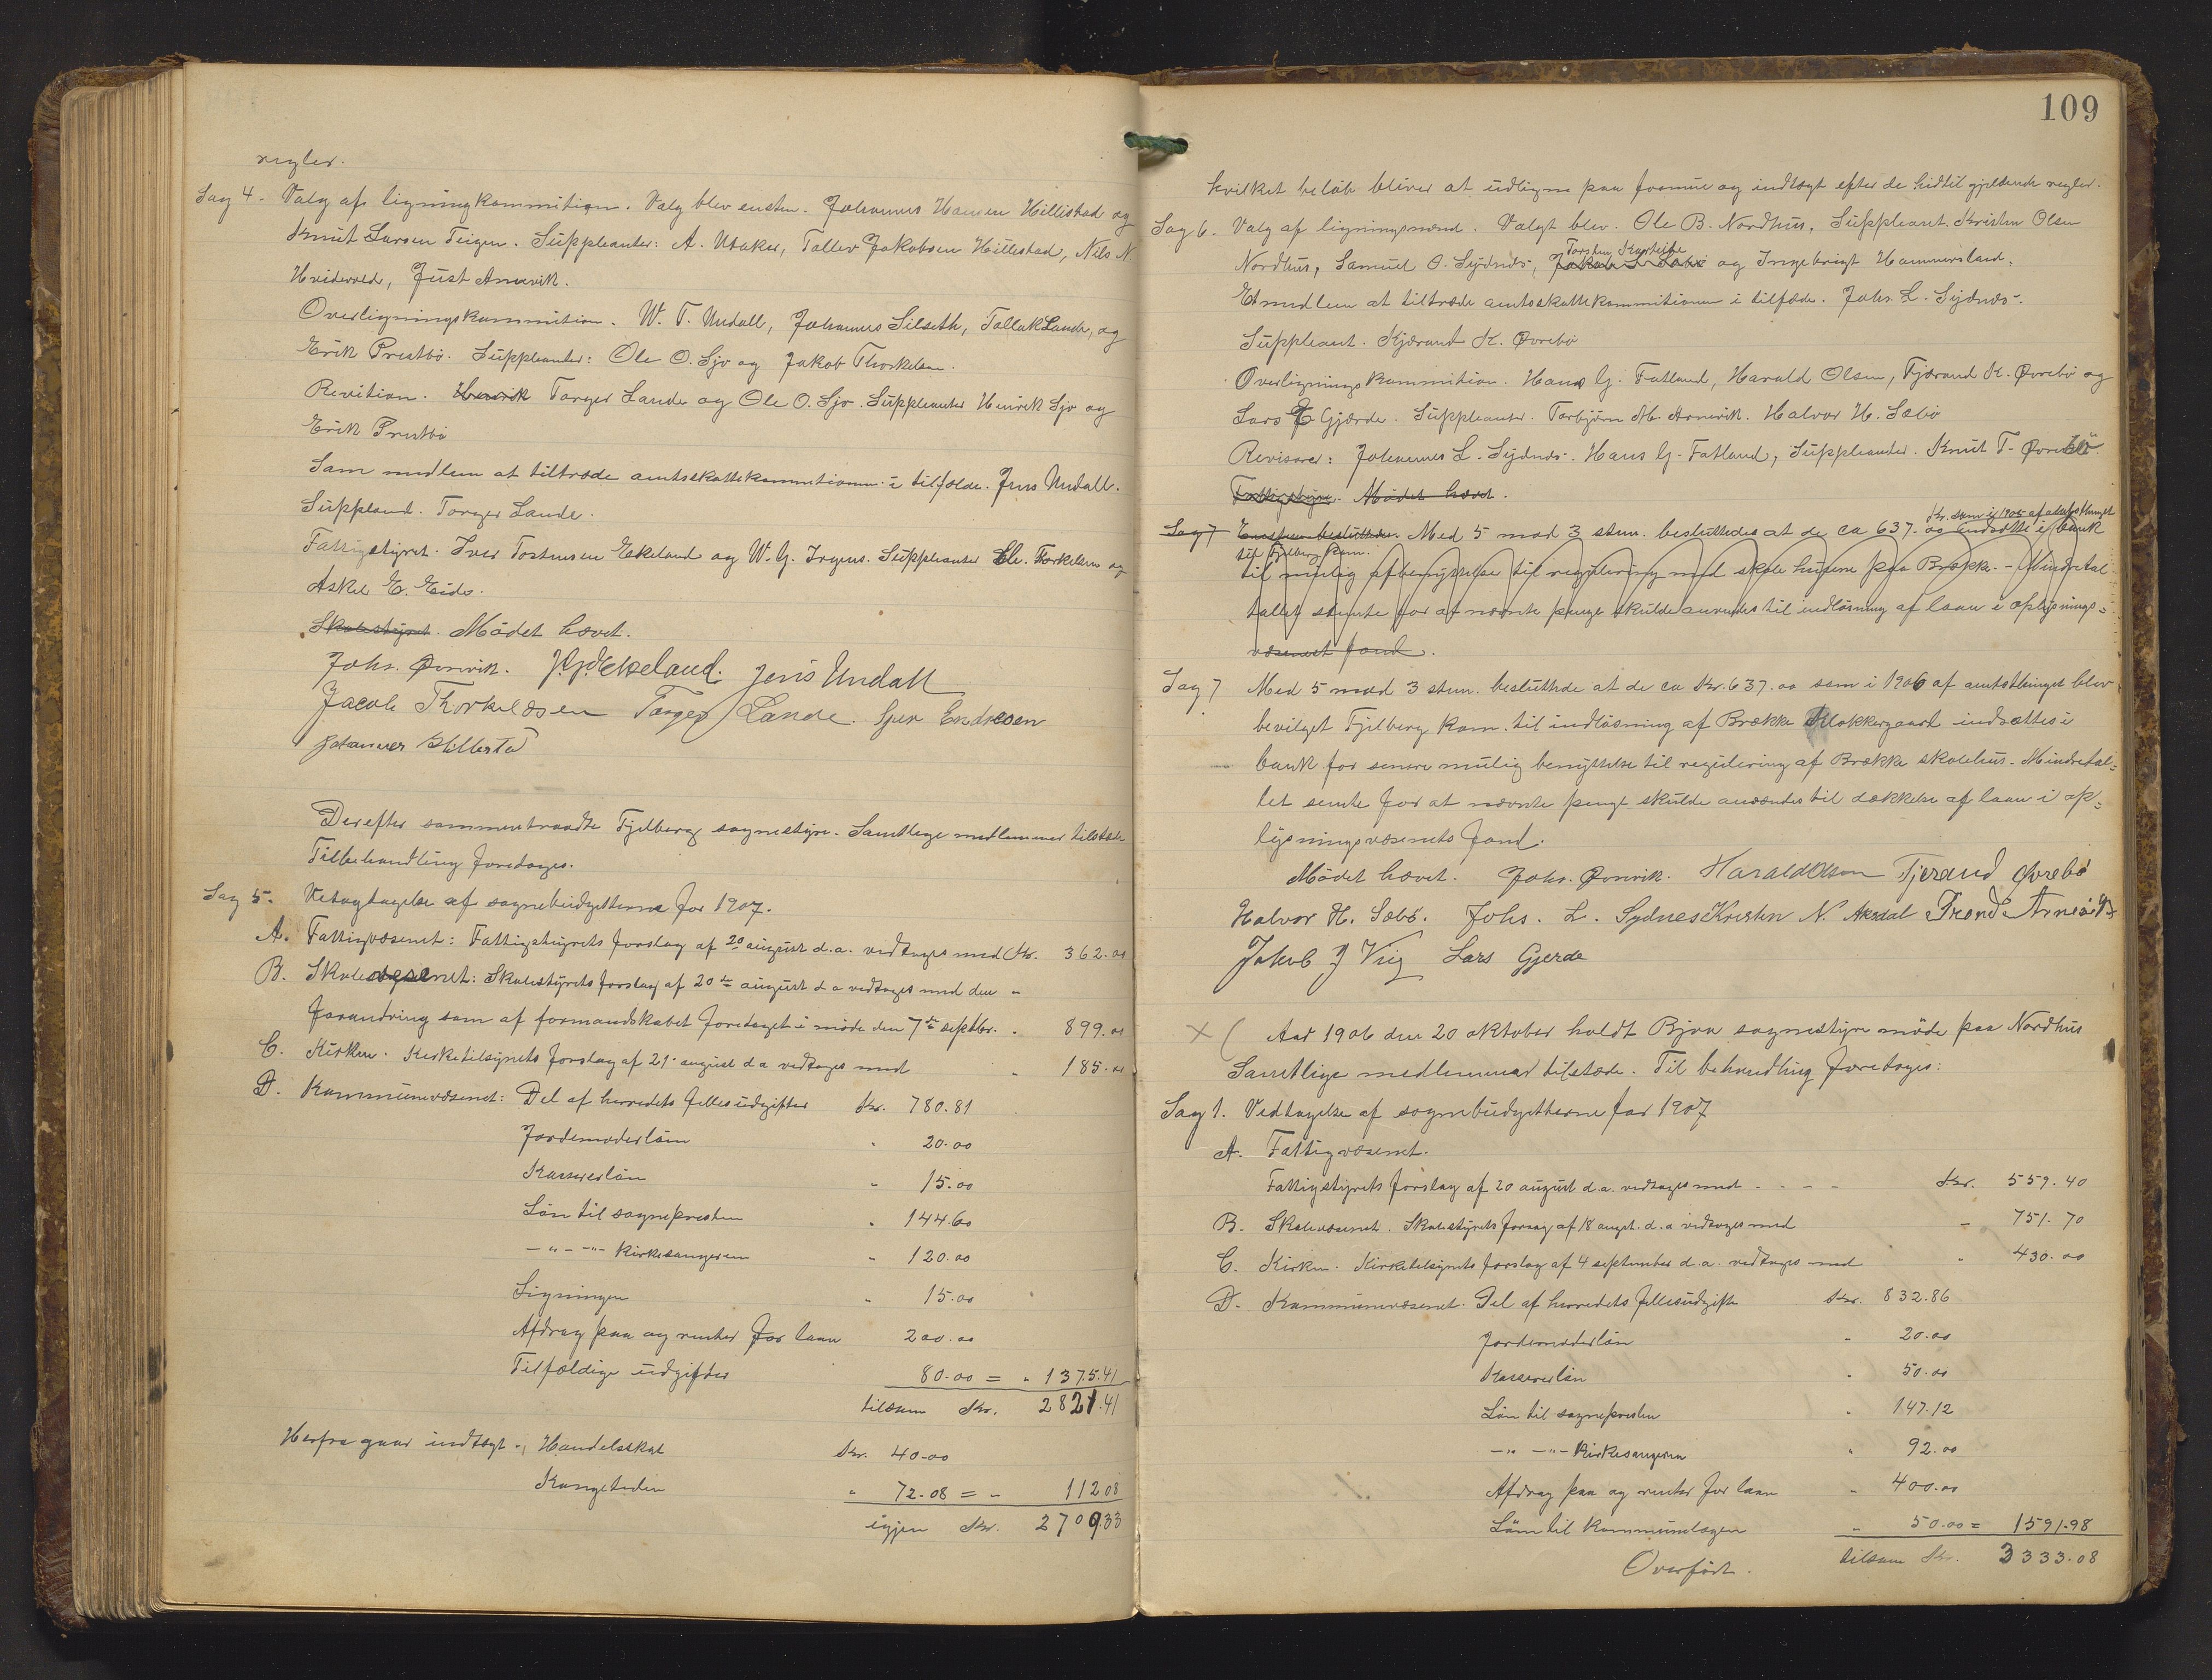 regler.
Sag 4. Valg af ligningkommition. Valg blev ensten. Johannes Hansen Hillistad og
Knut Larsen Teigen. Suppleanter: A. Utaker, Tallev Jakobsen Hillestad, Nils N
Hvidevold, Just Annevik.
Overligningskommition. W. T. Undall, Johannes Silseth, Tallak Lande, og
Erik Prestbø. Suppleanter: Ole O. Sjo og Jakob Thorkelsen.
Revition. Henrik Torger Lande og Ole O. Sjo. Suppleanter Henrik Sjo og
Erik Prestbø
Som medlem at tiltræde amtsskattekommitionen i tilfælde. Jens Undall.
Suppleand. Torger Lande.
Fattigstyret. Iver Tostensen Ekeland og W. G. Irgens. Suppleanter Torkelsen og
Askel E. Eide.
Skolestyret. Mødet hævet.
Johs. Qvrevik. Ekeland. Jens Undall
Jacob Thorkeldsen Torger Lande. Endresen
Johannes Hillesta
Derefter sammentraadte Fjelberg sognestyre. Samtlege medlemmer tilstede
Tilbehandling foretoges.
Sag 5. Vetagtagelse af sognebudgetterne for 1907.
A. Fattigvæsenet: Fattigstyrets forslag af 20 august d.a. vedtoges med Kr. 362.00
B. Skolevæsenet: Skolestyrets forslag af 20de august d a vedtoges med den "
forandring som af formandskabet foretoget i møde den 7de septbr. " 899.00
C. Kirken. Kirketilsynets forslag af 21. august d a vedtoges med " 185.00
D. Kommunevæsenet: Del af herredets fellesudgifter Kr. 780.81
Jordemoderløn " 20.00
Kassererløn " 15.00
Løn til sognepresten " 144.60
-"- -"- Kirkesangeren " 120.00
Ligningen " 15.00
Afdrag paa og renter for laan 200.00
Tilfældige udgifter 80.00 = " 1375.41
tilsam Kr. 2821.41
Herfra gaar indtægt, Handelsskat Kr. 40.00
Kongetiden " 72.08 = " 112 08
igjen Kr. 2709.33
109
hvilket beløb bliver at udligne paa formue og indtægt efter de hidtil gjeldende regler.
Sag 6. Valg af ligningsnævnd. Valgt blev. Ole B. Nordhus, Suppleant. Kristen Olsen
Torsten
Nordhus, Samuel O. Sydnes, Jakob og Ingebrigt Hammersland.
Et medlem at tiltræde amtsskattekommitionen i tilfælde. Johs. L. Sydnes.
Suppleant. Kjærand K. Qvrebø
Overligningskommition. Hans G. Fatland, Harald Olsen, Tjærand K. Qvrebø og
Lars Gjærde. Suppleanter. Torbjørn M. Arnevik. Halvor H. Sæbø
Revisorer: Johannes L. Sydnes. Hans G. Fatland, Suppleanter. Knut T. Qvrebø
Fattigstyre. Mødet hævet.
Kr. som i 1906 af amtsthinget
Sag 7 Enstem besluttedes. Med 5 mod 3 stem. besluttedes at de ca 637.00 indsætte i bank
til Fjelberg kom.
til mulig afbenyttelse til regulering med skole husene paa Brække. - Mindretal
tallet stemte for at nævnte penge skulde anvendes til indløsning af laan i oplysnings=
væsenets fond.
Sag 7 Med 5 mod 3 stem. besluttede at de ca Kr. 637.00 som i 1906 af amtsthinget blev
bevilget Fjelberg kom. til indløsning af Brække Klokkergaard indsættes i
bank for senere mulig benyttelse til regulering af Brække skolehus. Mindretal=
let semte for at nævnte penge skulde anvendes til dækkelse af laan i op=
lysningsvæsenets fond.
Mødet hævet. Johs. Qvrevik. Harald Olsen Tjerand Qvrebø
Halvor H. Sæbø. Johs. L. Sydnes Kristen N. Aksdal Trond Arnevik
Jakob J Vig Lars Gjerde
Aar 1906 den 20 oktober holdt Bjoa sognestyre møde paa Nordhus
Samtlige medlemmer tilstæde. Til behandling foretoges:
Sag 1. Vedtagelse af sognebudgetterne for 1907
A. Fattigvæsenet.
Fattigstyrets forslag af 20 august d.a. vedtoges med - - - - Kr. 559.40
B. Skolevæsenet. Skolestyrets forslag af 18 augst. d.a vedtoges med " 751.70
C. Kirken. Kirketilsynets forslag af 4 september d.a. vedtoges med " 430.00
D. Kommunevæsenet. Del af herredets fellesudgifter Kr. 832.86
Jordemoderløn " 20.00
Kassererløn " 50.00
Løn til sognepresten " 147.12
-"- -"- Kirkesangeren " 92.00
Afdrag paa og renter for laan " 400.00
Løn til Kommunelægen " 50.00 = 1591.98
Overført. tilsam Kr. 3333.08